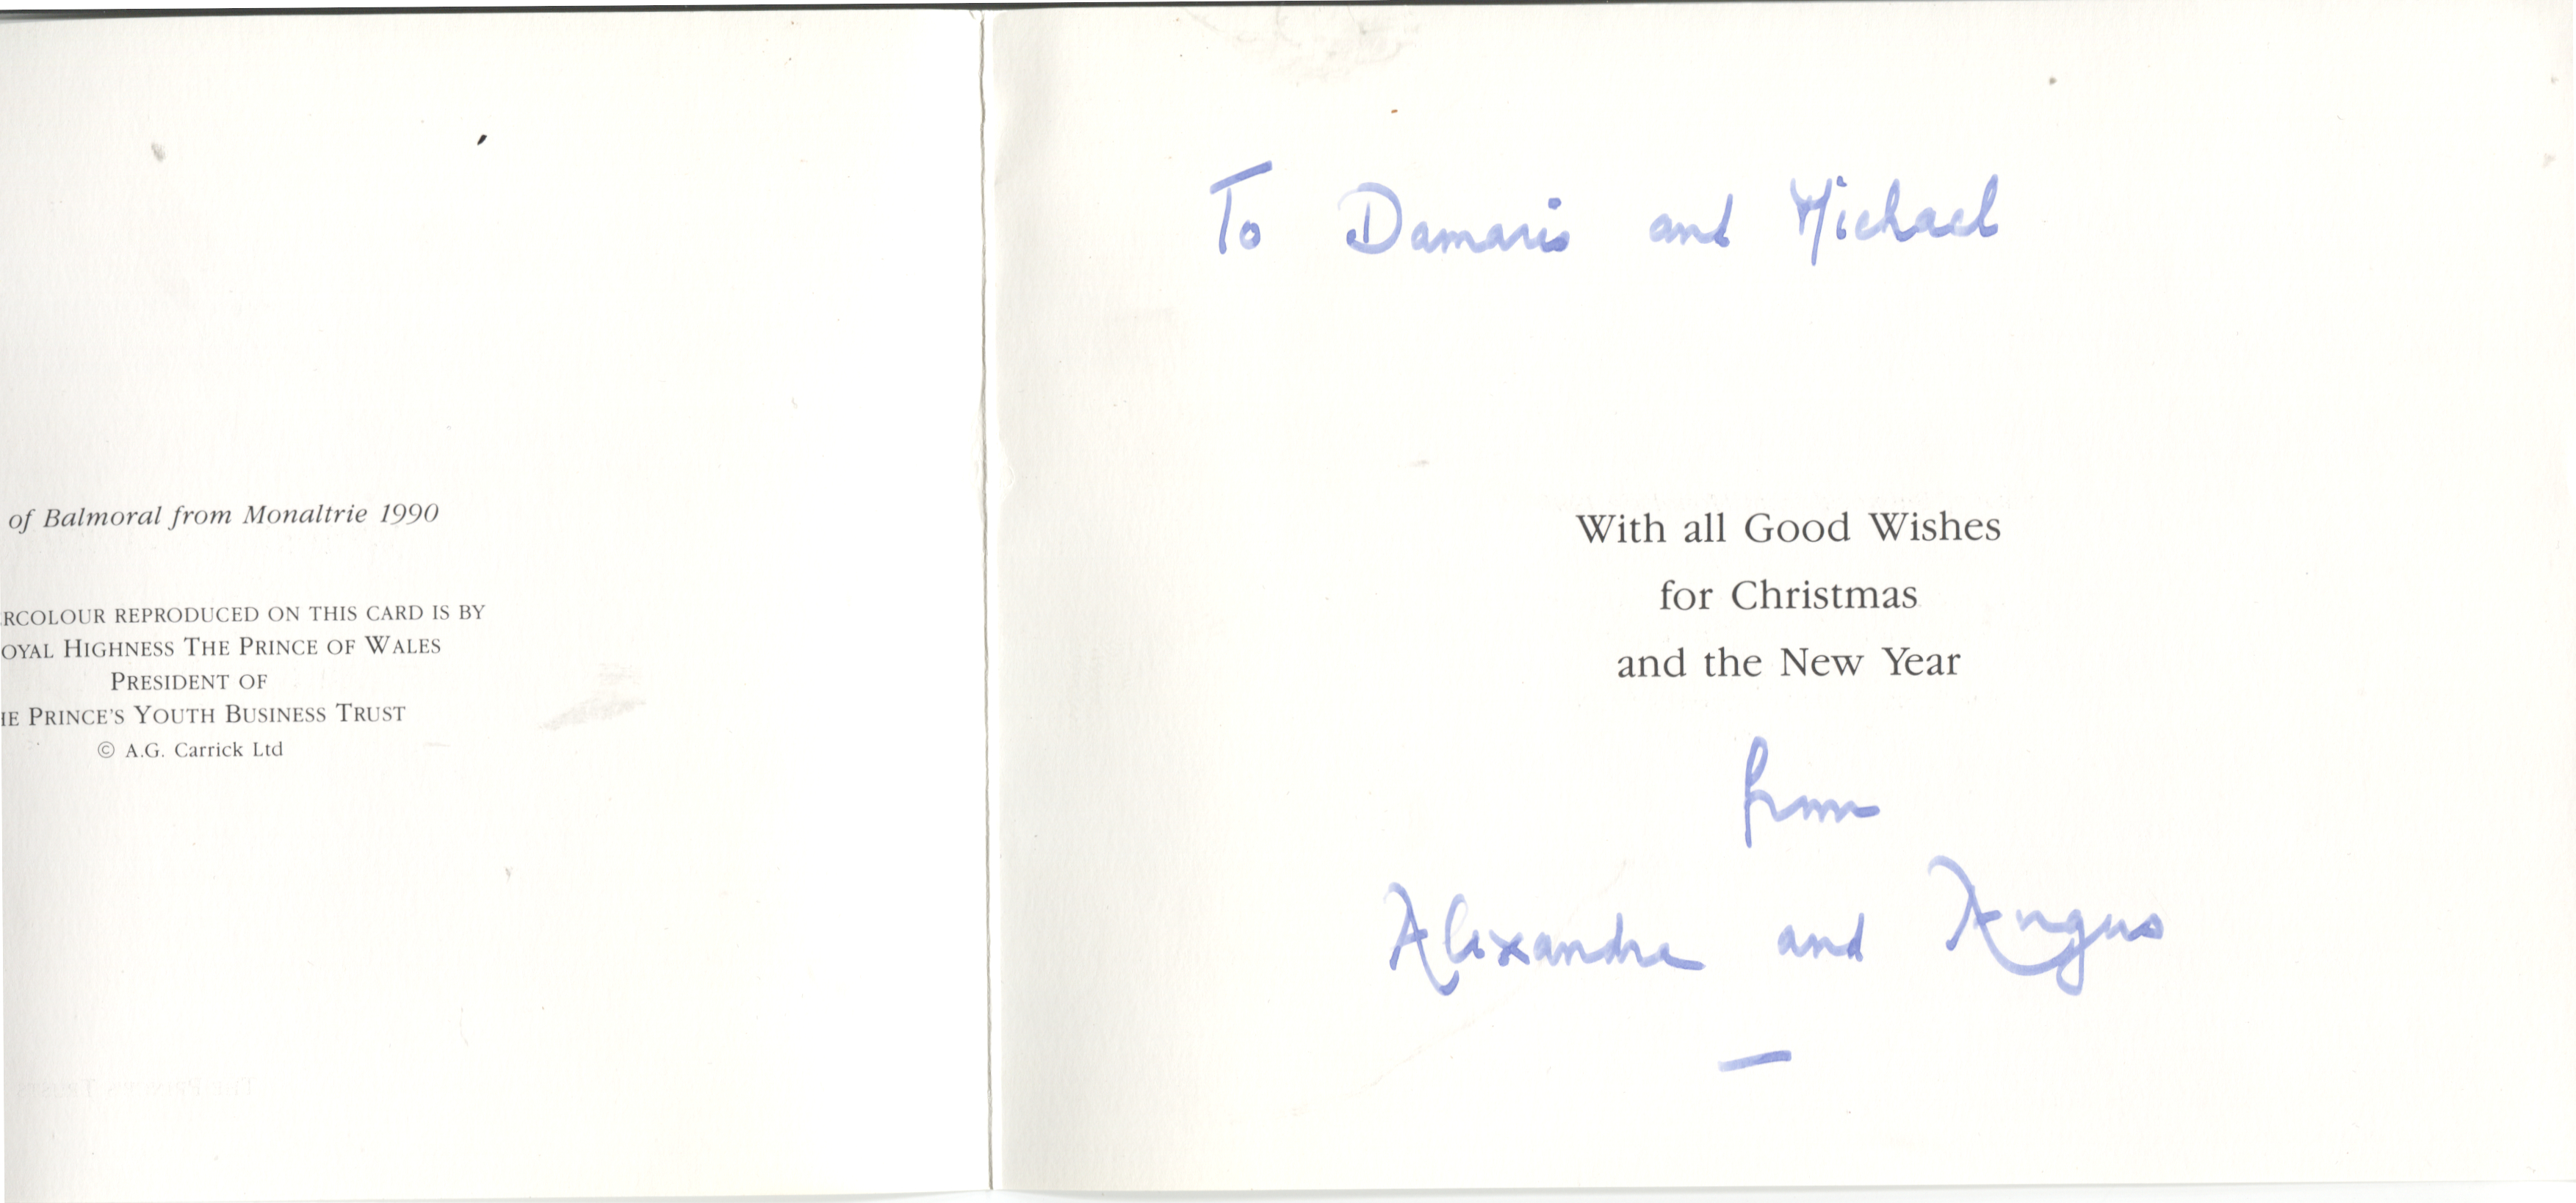 of Balmoral from Monaltrie 1990
RCOLOUR REPRODUCED ON THIS CARD IS BY
OYAL HIGHNESS THE PRINCE OF WALES
PRESIDENT OF
HE PRINCE'S YOUTH BUSINESS TRUST
© A.G. Carrick Ltd
To Damaris and Michael
With all Good Wishes
for Christmas
and the New Year
from
Alexandra and Angus